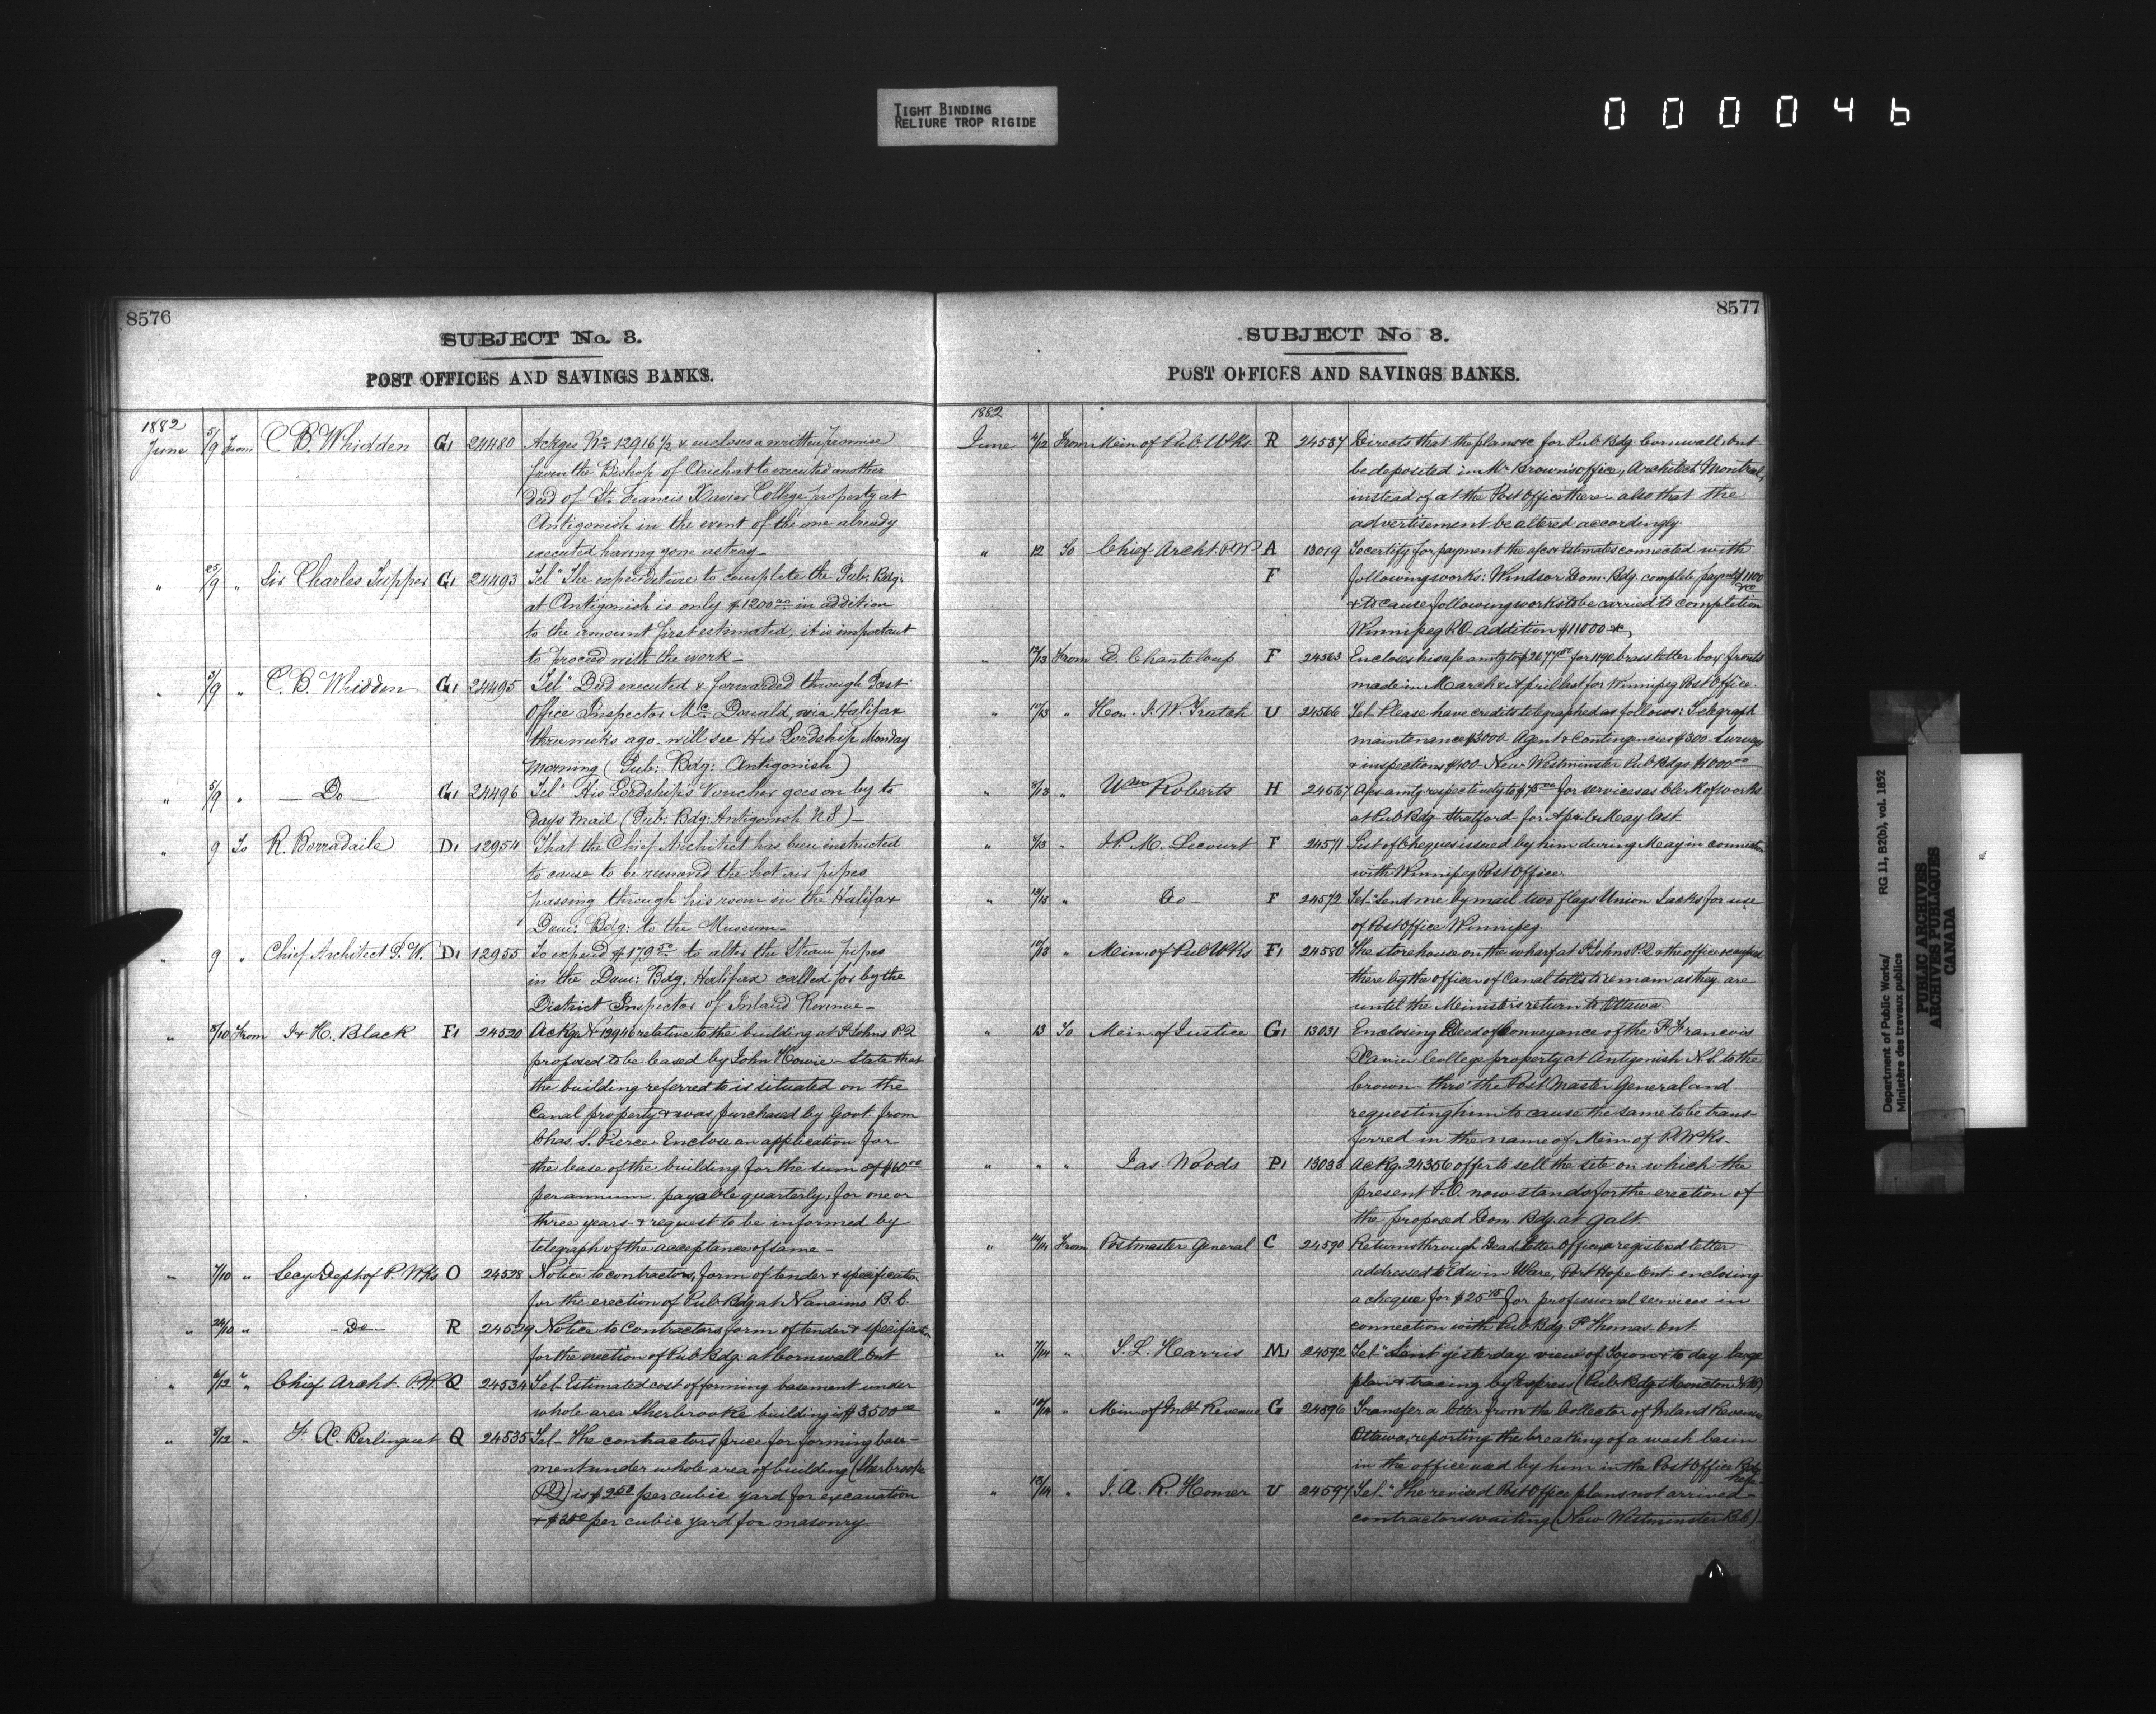 TIGHT BINDING
RELIURE TROP RIGIDE
000046
8576
SUBJECT No. 3.
POST OFFICES AND SAVINGS BANKS.
1882
June 5/9 From C. B. Whidden G1 24480 Ackges No 12916 1/2 & encloses a written promise
from the Bishop of Arichat to executed another
deed of St. Francis Xavier College property at
Antigonish in the event of the one already
executed having gone astray_
" 25/9 " Sir Charles Tupper G1 24493 Tel" The expenditure to complete the Pub: Bdg:
at Antigonish is only $1200.00 in addition
to the amount first estimated, it is important
to proceed with the work_
" 5/9 " C. B. Whidden G1 24495 Tel" Deed executed & forwarded through Post
Office Inspector Mc. Donald, via Halifax
three weeks ago. will see His Lordship Monday
morning (Pub: Bdg: Antigonish)
" 5/9 " _ Do _ G1 24496 Tel" His Lordship's Voucher goes on by to
days mail (Pub: Bdg: Antigonish N.S)_
" 9 To R. Borradaile D1 12954 That the Chief Architect has been instructed
to cause to be removed the hot air pipes
passing through his room in the Halifax
Dom: Bdg: to the Museum_
" 9 " Chief Architect P. W. D1 12955 To expend $179.50 to alter the Steam pipes
in the Dom: Bdg. Halifax called for by the
District Inspector of Inland Revenue_
" 8/10 From J & H. Black F1 24520 Ackge No 12946 relative to the building at St Johns P.Q
proposed to be leased by John Howie - State that
the building referred to is situated on the
Canal property & was purchased by Govt. from
Chas. S. Pierce - Enclose an application for
the lease of the building for the sum of $60.00
per annum. payable quarterly, for one or
three years - & request to be informed by
telegraph of the acceptance of same_
" 7/10 " Secy Dept of P. Wks O 24528 Notice to contractors, form of tender & specification
for the erection of Pub Bdg at Nanaimo B. C.
" 24/10 " - Do - R 24529 Notice to Contractors form of tender & specification
for the erection of Pub Bdg. at Cornwall Ont
" 6/12 " Chief Archt. P.W. Q 24534 Tel - Estimated cost of forming basement under
whole area Sherbrooke building is $3500.00
" 8/12 " F. X. Berlinguet Q 24535 Tel - The contractors price for forming base-
ment under whole area of building (Sherbrooke
P.Q) is $ per cubic yard for excavation
& $ per cubic yard for masonry.
8577
SUBJECT No 3.
POST OFFICES AND SAVINGS BANKS.
1882
June 9/12 From Min of Pub. Wks R 24537 Directs that the plans &c for Pub Bdg. Cornwall, Ont
be deposited in Mr Brown's office, Architect Montreal,
instead of at the Post Office there - also that the
advertisement be altered accordingly.
" 12 To Chief Archt. P.W A 13019 To certify for payment the afcs & Estimates connected with
F following works: Windsor Dom. Bdg. complete payment $1100 &c
& to cause following works to be carried to completion
Winnipeg P.O. addition $11000 &c,
" 12/13 From E. Chanteloup F 24563 Encloses his a/c amtg to $2677.50 for 1190 brass letter box fronts
made in March & April last for Winnipeg Post Office.
" 17/13 " Hon. J. W. Trutch U 24566 Tel - Please have credits telegraphed as follows: Telegraph
maintenance $3000 - Agent & Contingencies $300 - Surveys
& inspections $400 - New Westminster Pub Bdgs $1000.00
" 8/13 " Wm Roberts H 24567 Afcs amtg respectively to $75.00 for services as Clerk of works
at Pub Bdg - Stratford - for April & May last.
" 8/13 " J. P. M. Lecourt F 24571 List of Cheques issued by him during May in connection
with Winnipeg Post Office.
" 13/13 " Do F 24572 Tel - "Send me by mail two flags Union Jacks for use
of Post Office Winnipeg.
" 10/13 " Min. of Pub Wks F1 24580 The storehouse on the wharf at St Johns P.Q. & the office occupied
there by the officer of Canal tolls to remain as they are
until the Minister's return to Ottawa.
" 13 To Min of Justice G1 13031 Enclosing Deed of Conveyance of the St Francois
Xavier College property at Antigonish N.S. to the
Crown - thro' the Post Master General and
requesting him to cause the same to be trans-
ferred in the name of Min of P. Wks_
" " " Jas. Woods P1 13033 Ackg. 24356 offer to sell the site on which the
present P.O. now stands for the erection of
the proposed Dom. Bdg. at Galt.
" 14/14 From Postmaster General C 24590 Returns through Dead Letter Office, a registered letter
addressed to Edwin Ware, Port Hope Ont - enclosing
a cheque for $25.75 for professional services in
connection with Pub Bdg. St Thomas. Ont
" 7/14 " S. L. Harris M1 24592 Tel - "Sent yesterday view of Town & to day large
plan & tracing by Express (Pub. Bdg. Moncton N.B.)
" 10/14 " Min of Inld Revenue G 24596 Transfer a letter from the Collector of Inland Revenue
Ottawa, reporting the breaking of a wash basin
in the office used by him in the Post Office Bdg here
" 13/14 " J. A. R. Homer U 24597 Tel. "The revised Post Office plans not arrived -
contractors waiting (New Westminster B.C.)
Department of Public Works/ RG 11, B2(b), vol. 1852
Ministère des travaux publics
PUBLIC ARCHIVES
ARCHIVES PUBLIQUES
CANADA